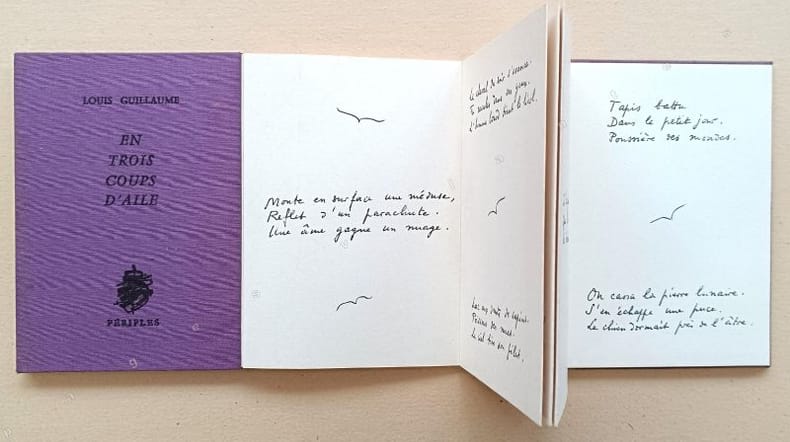 LOUIS GUILLAUME
EN
TROIS
COUPS
D'AILE
PÉRIPLES
Monte en surface une méduse,
Reflet d'un parachute.
Une âme gagne un nuage.
Le cheval de
Tu dans
L'homme tend le bol.
de
Le ciel tire son filet.
Tapis battu
Dans le petit jour.
Poussière des mondes.
On cassa la pierre lunaire.
S'en échappe une puce.
Le chien dormait près de l'âtre.